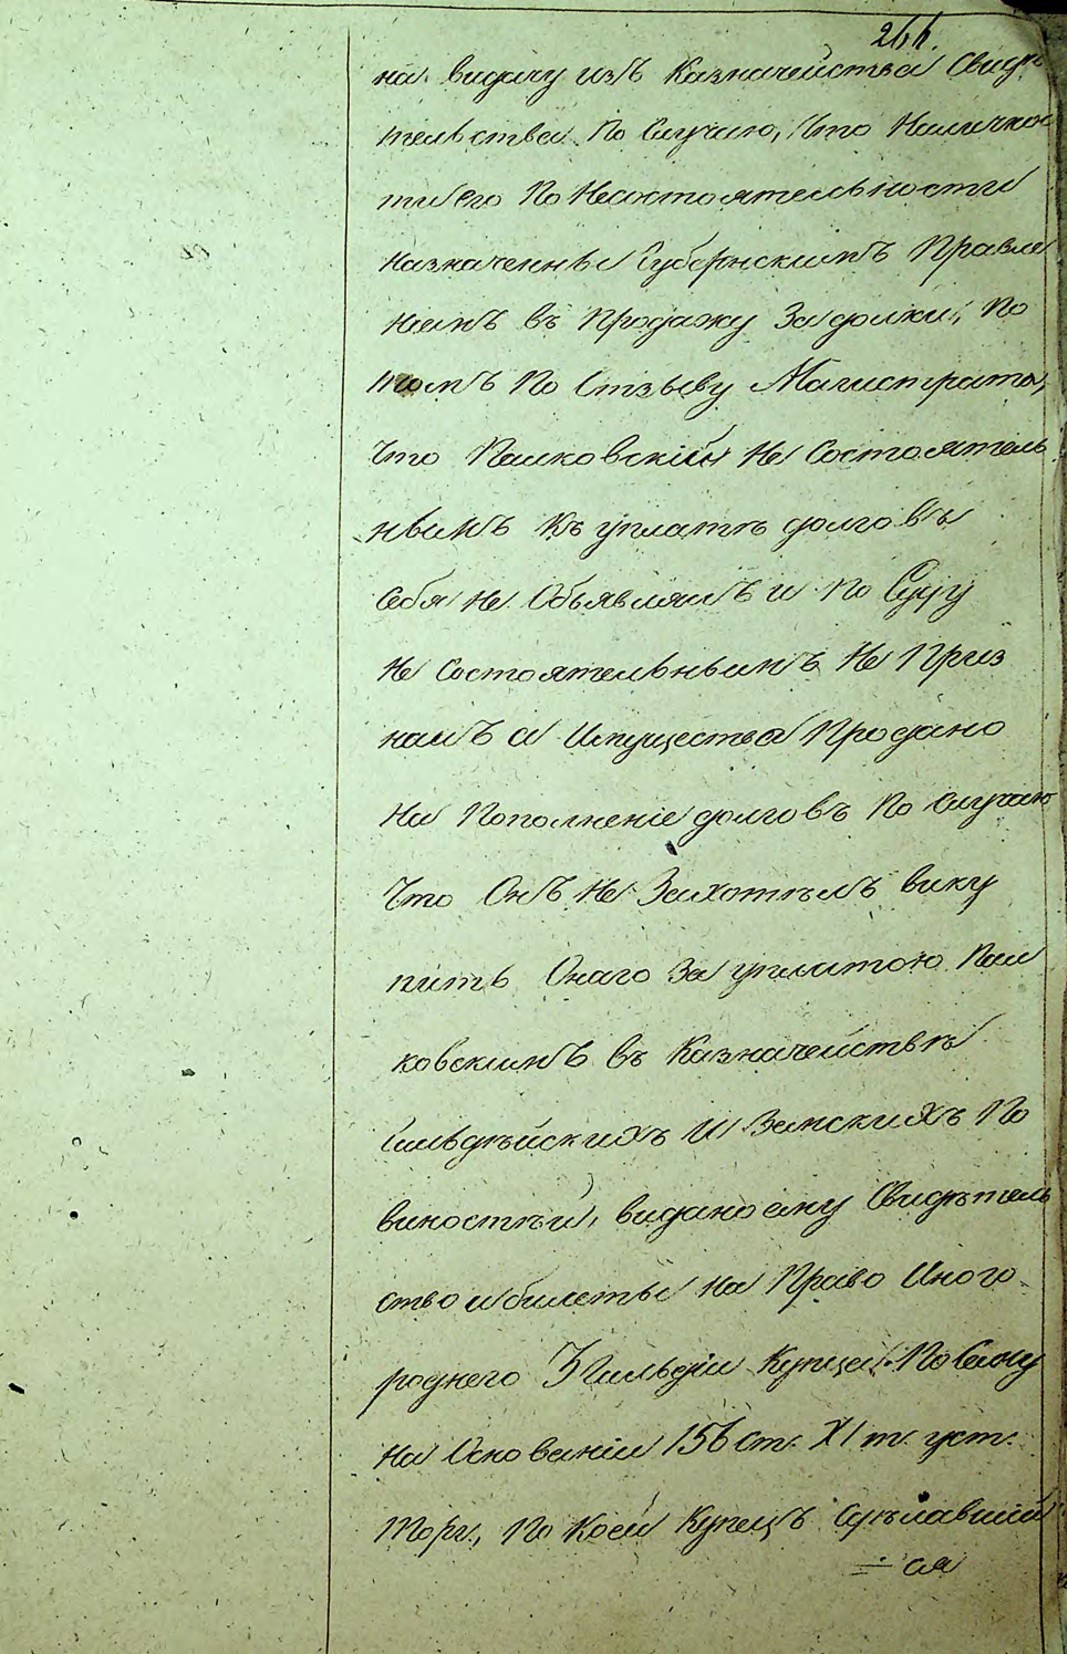 на видачу изъ Казначейства Свидѣ
тельства по Случаю, что
его по Несостоятельности
назначенны Губернскимъ Правле
ніемъ въ Продажу За долги, По
томъ По Отзыву Магистрата,
Что Палковскій Не Состоятель
нымъ Къ уплатѣ долговъ
себя Не Объявлялъ и По Суду
Не Состоятельнымъ Не Приз
нанъ а Имущества Продано
На Пополненіе долговъ По случаю
Что Онъ Не Захотѣлъ вику
пить Онаго За уплатою Пал
ковскимъ въ Казначействѣ
Гильдѣйскихъ И Земскихъ По
виностѣй, видано ему Свидѣтель
ство и билеты На Право Иного
роднего 3 Гильдіи Купца. По Сему
На Основаніи 156 ст. XI т. уст.
Торг., По Коей Купецъ Сдѣлавшій
ся